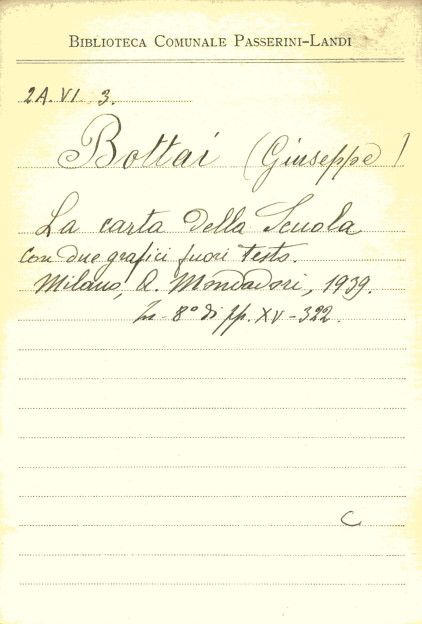 BIBLIOTECA COMUNALE PASSERINI-LANDI
2A. VI. 3.
Bottai (Giuseppe)
La carta della Scuola
con due grafici fuori testo.
Milano, A. Mondadori, 1939.
In-8° di pp. XV-322.
C